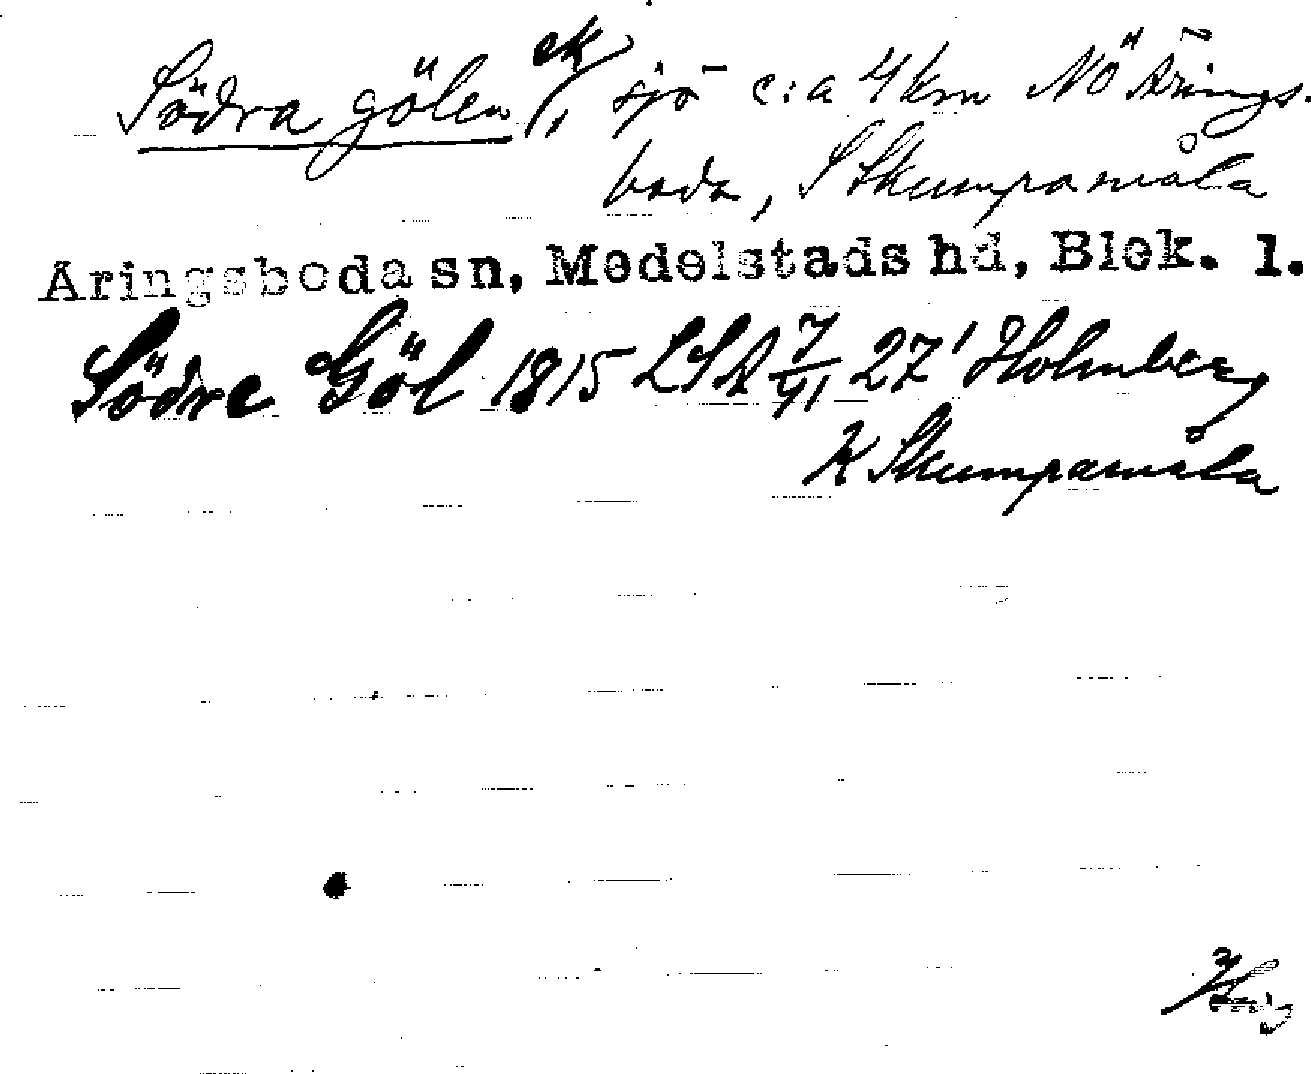 Södra gölen ek/, sjö c:a 4 km NÖ Årings-
boda, S Skumpamåla
Åringsboda sn, Medelstads hd, Blek. l.
Södre Göl 1815 LSA 7/VI 27' Holmberg
K Skumpamåla